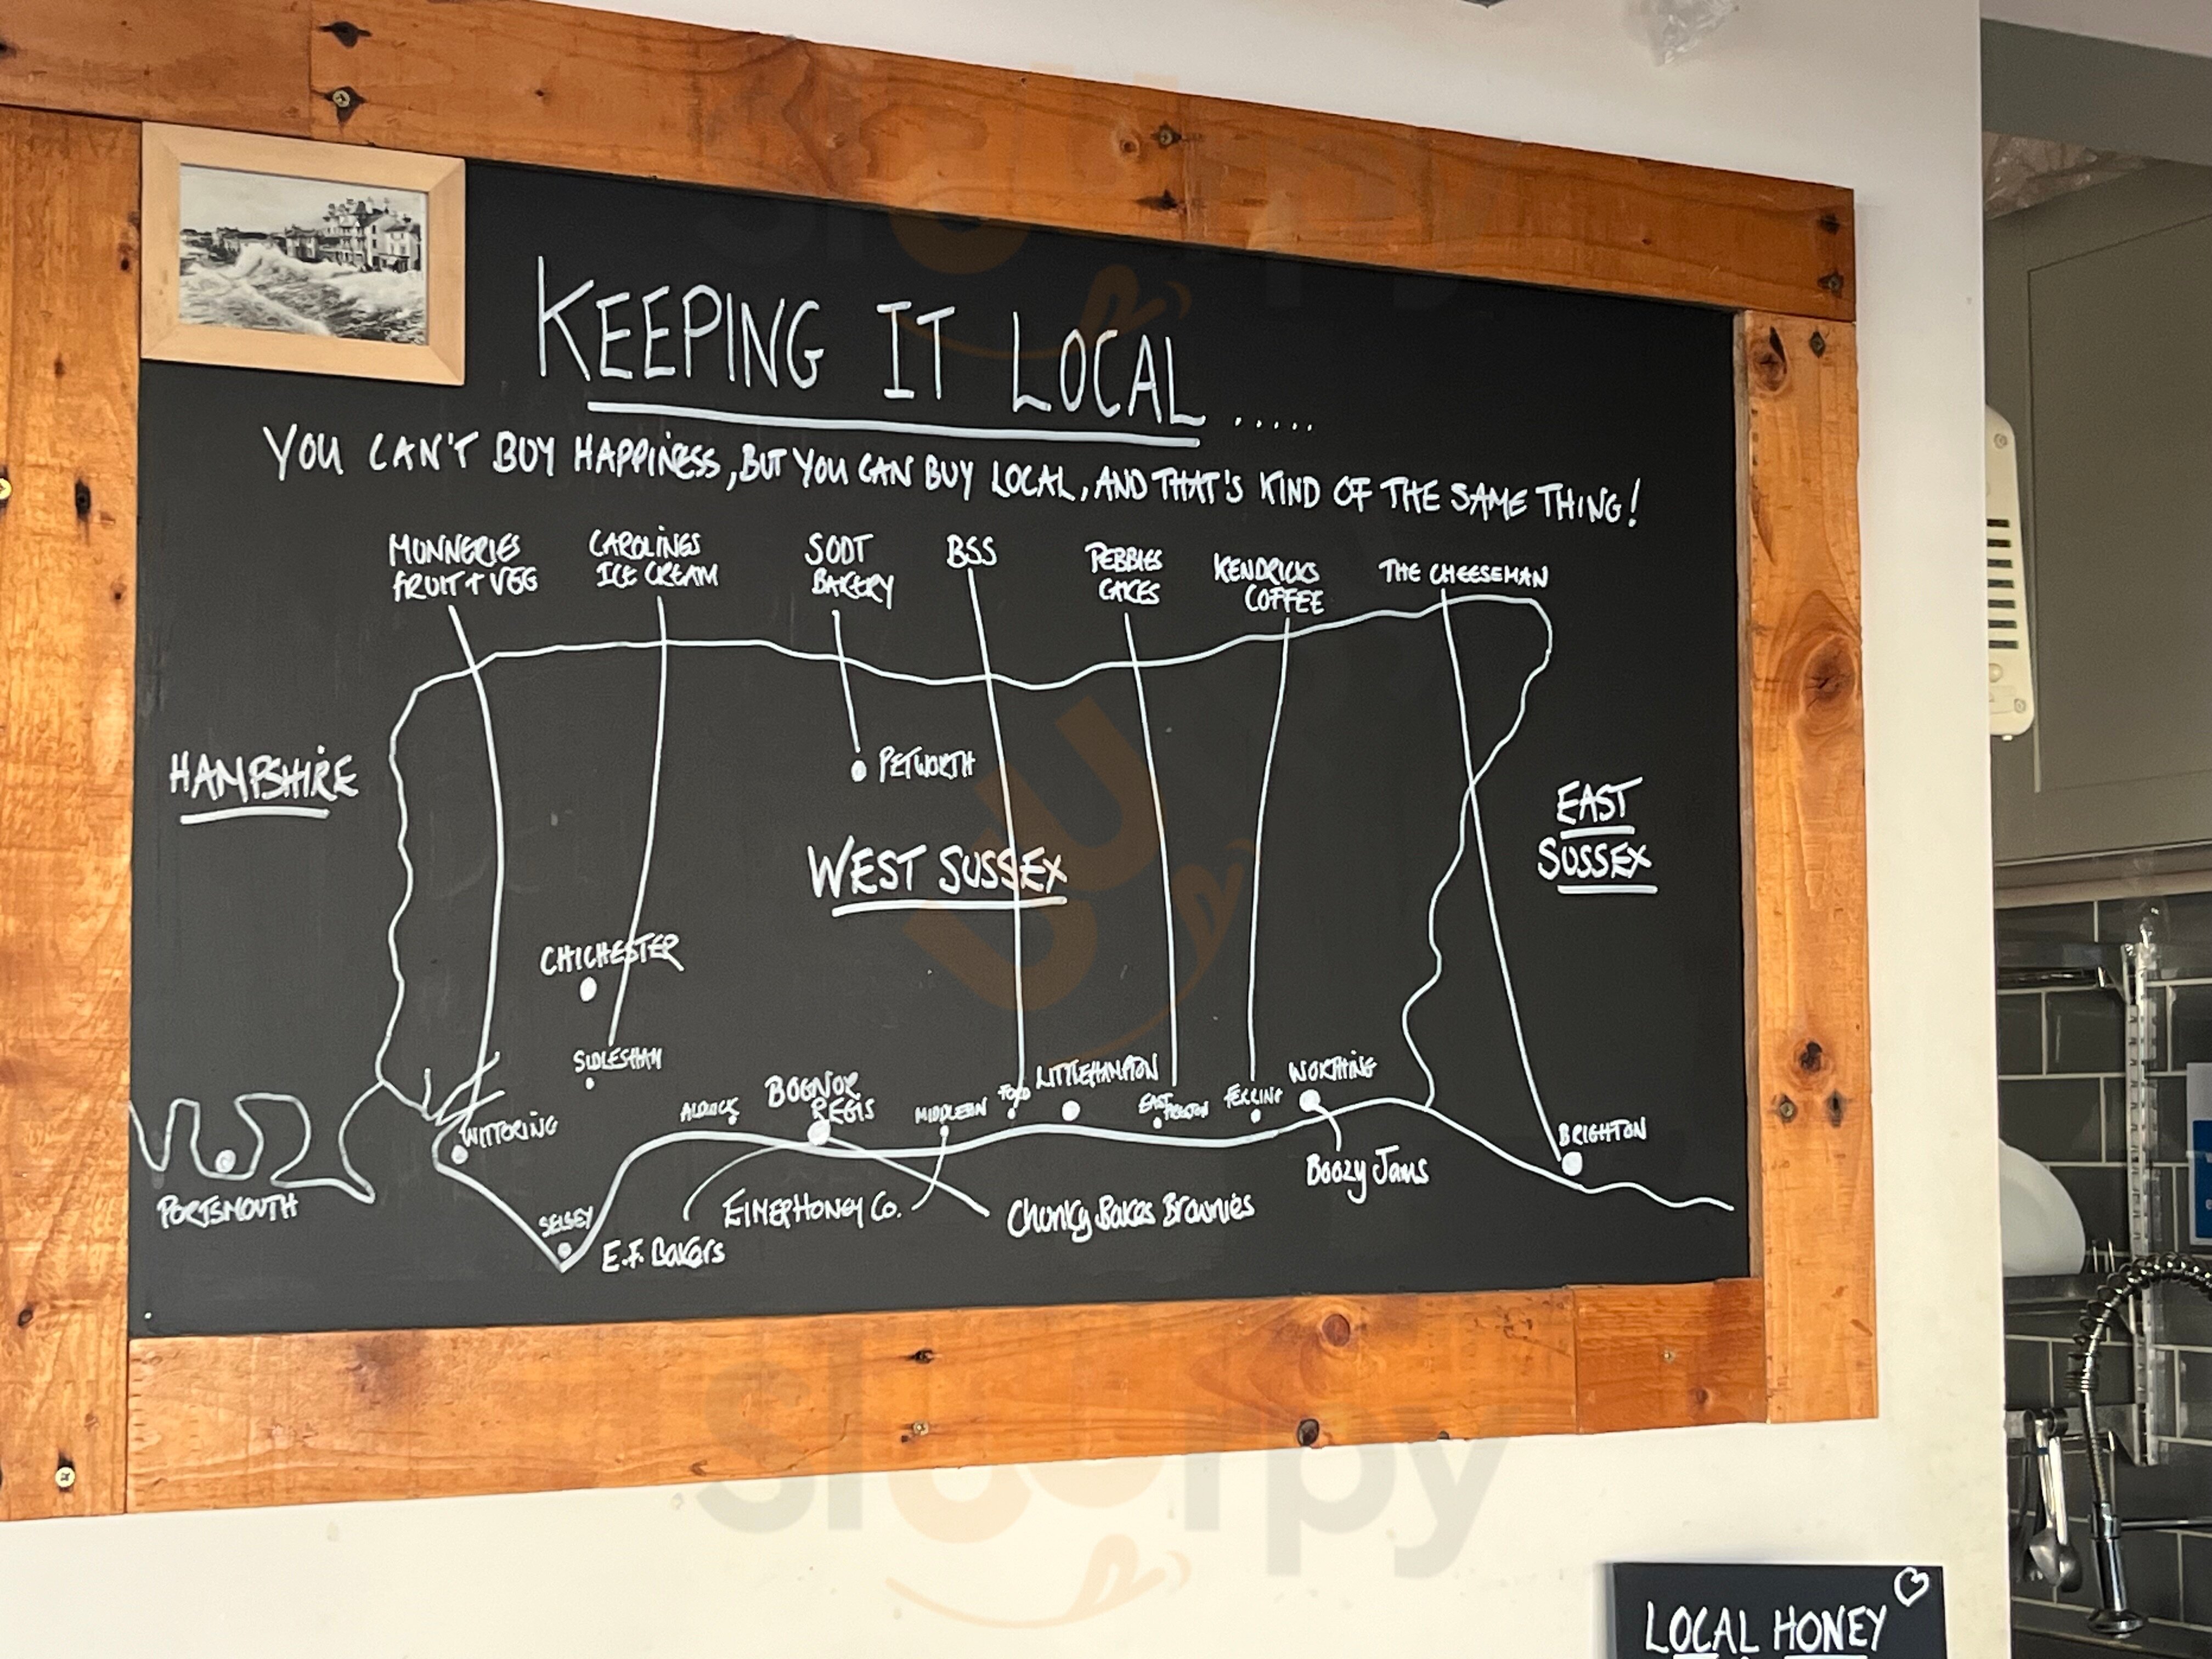 KEEPING IT LOCAL.....
YOU CAN'T BUY HAPPINESS, BUT YOU CAN BUY LOCAL, AND THAT'S KIND OF THE SAME THING!
MUNNERIES
FRUIT + VEG
CAROLINES
ICE CREAM
SODT
BAKERY
BSS
PEBBLES
CAKES
KENDRICKS
COFFEE
THE CHEESEMAN
HAMPSHIRE
PETWORTH
WEST SUSSEX
EAST
SUSSEX
CHICHESTER
SIDLESHAM
WITTERING
PORTSMOUTH
SELSEY
ALDWICK
BOGNOR
REGIS
MIDDLETON
FORD
LITTLEHAMPTON
EAST
PRESTON
FERRING
WORTHING
BRIGHTON
E.F. Bakers
Chunky Bakes Brownies
Boozy Jams
LOCAL HONEY
slurpy